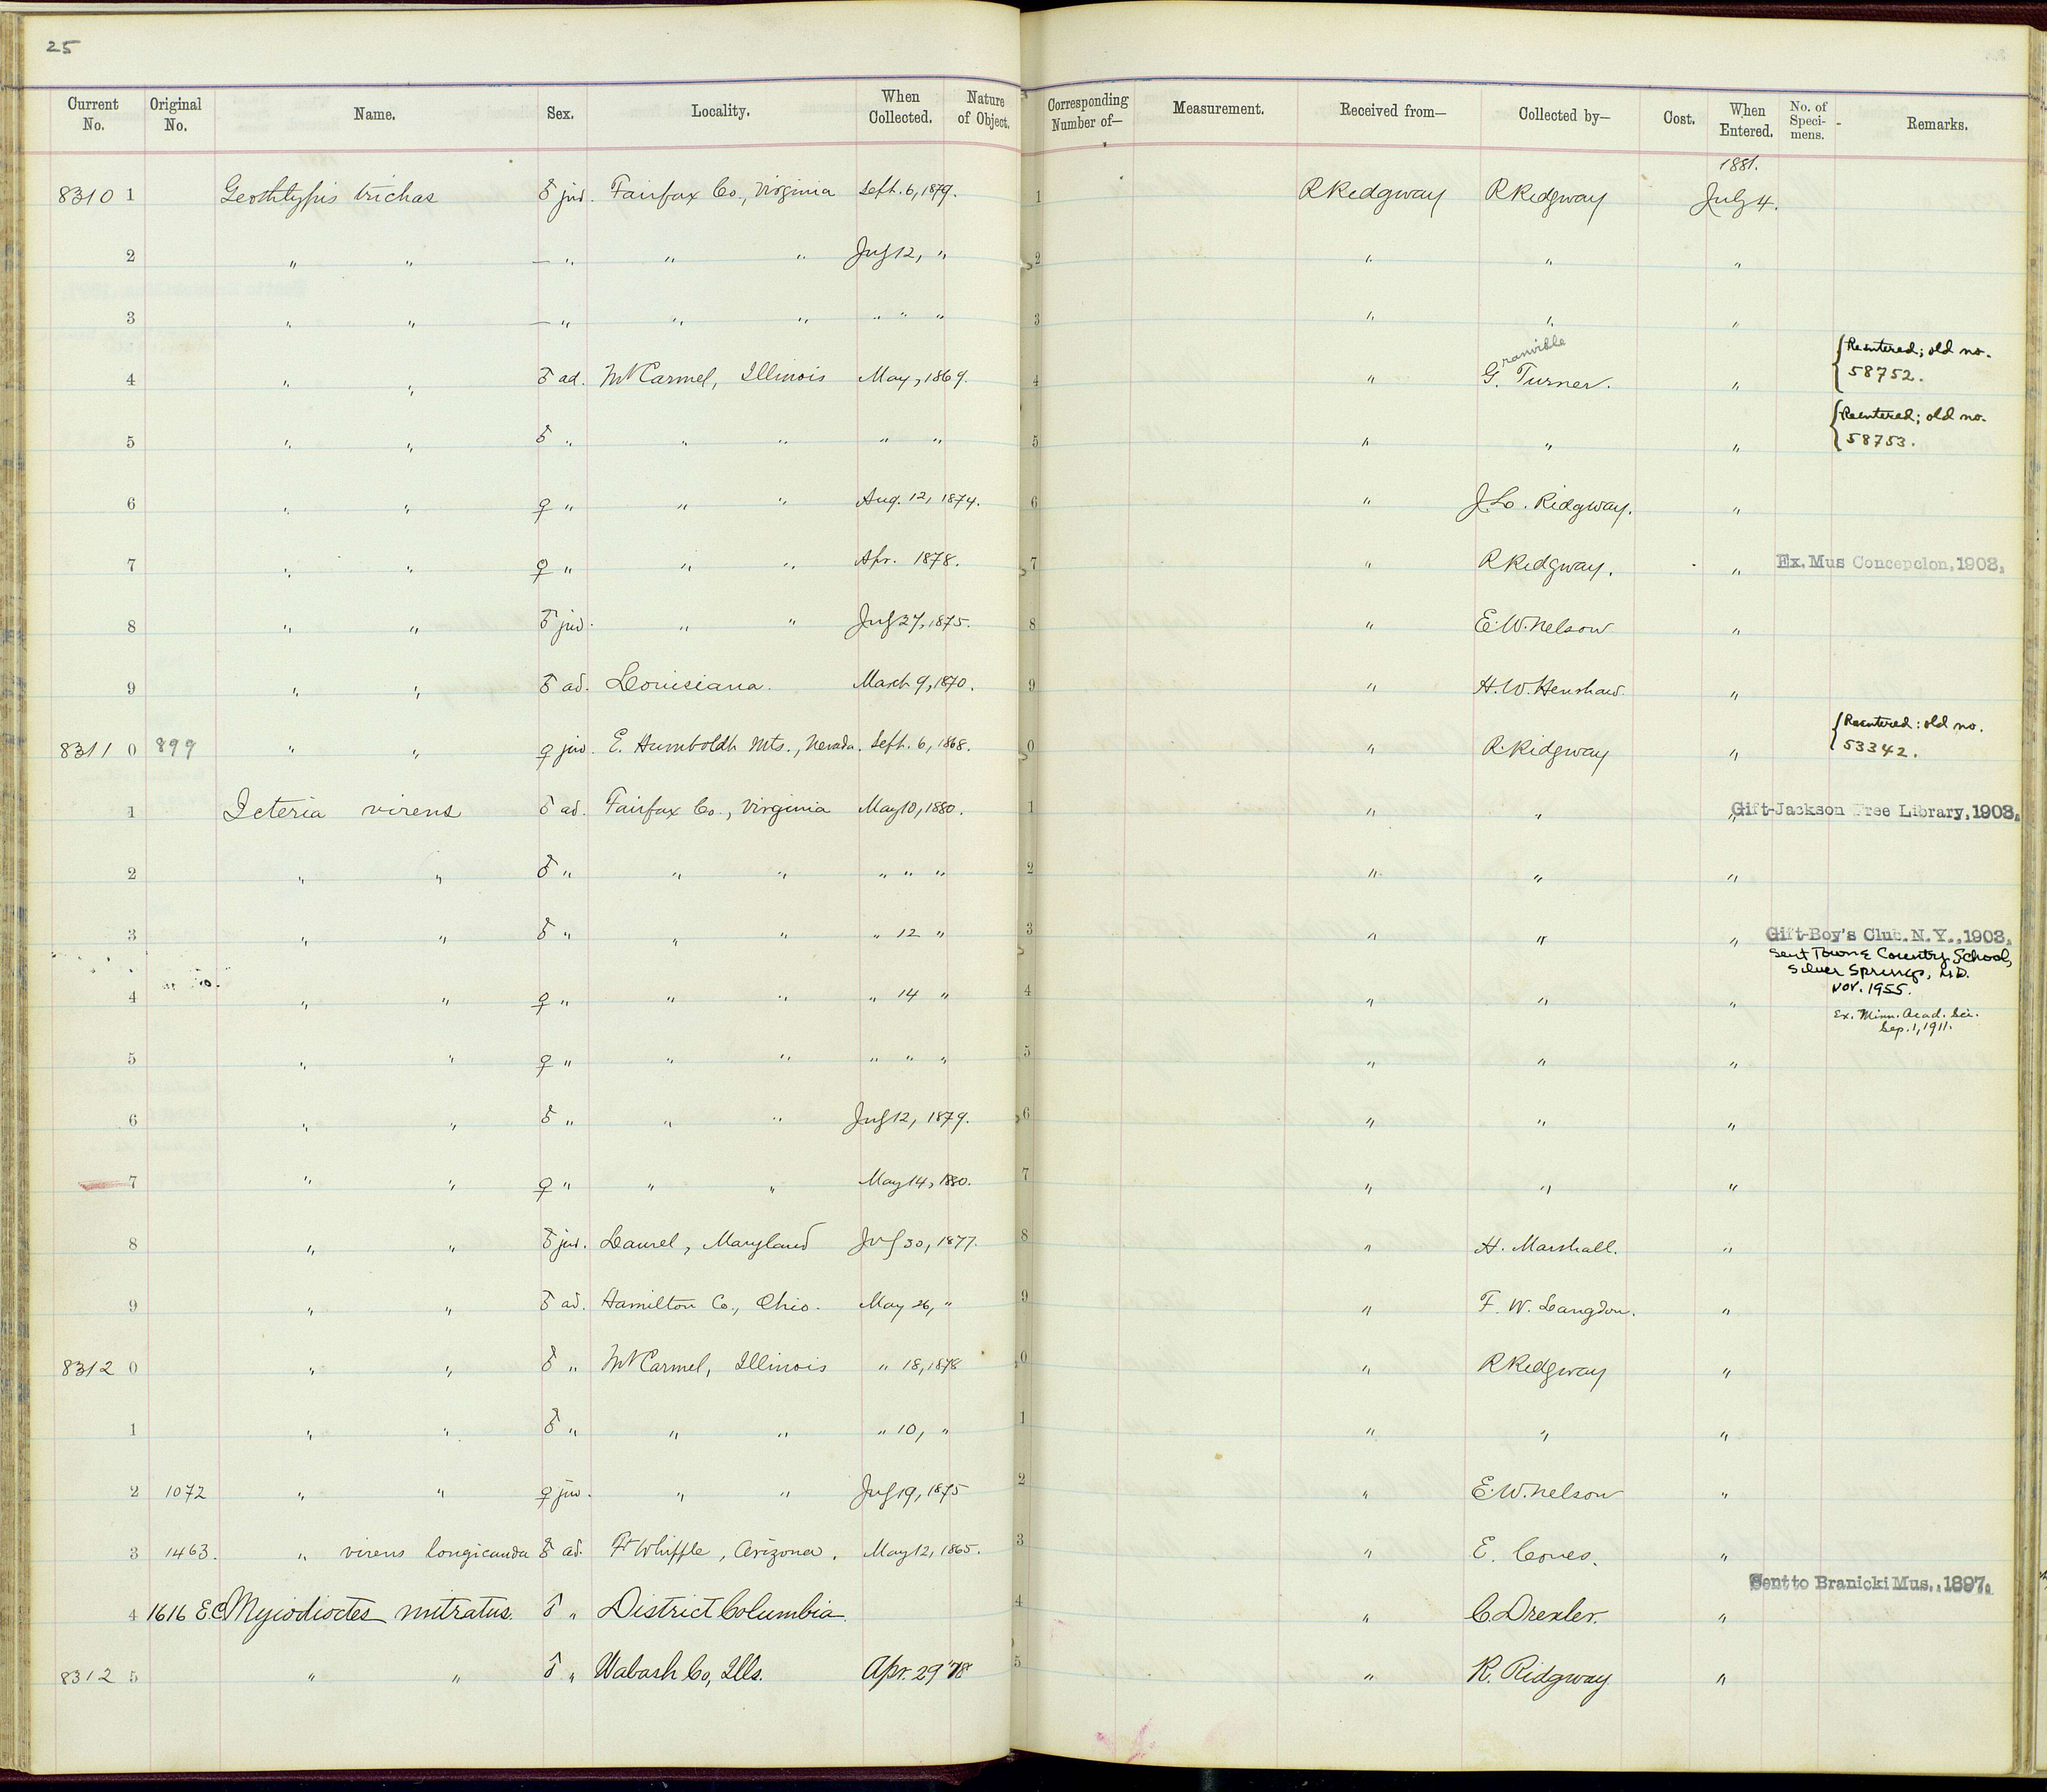 25
Current No. Original No. Name. Sex. Locality. When Collected. Nature of Object. Corresponding Number of— Measurement. Received from— Collected by— Cost. When Entered. No. of Speci-mens. Remarks.
1881.
8310 1 Geothlypis trichas ♂ juv. Fairfax Co., Virginia Sept. 6, 1879. 1 R Ridgway R Ridgway July 4.
2 " " — " " " July 12, " 2 " " "
3 " " — " " " " " " 3 " " "
4 " " ♂ ad. Mt Carmel, Illinois May, 1869. 4 " Granville Turner. " Reentered; old no. 58752.
5 " " ♂ " " " " " 5 " " " Reentered; old no. 58753.
6 " " ♀ " " " Aug. 12, 1874. 6 " J. L. Ridgway. "
7 " " ♀ " " " Apr. 1878. 7 " R Ridgway. " Ex. Mus Concepcion, 1903.
8 " " ♂ juv. " " July 27, 1875. 8 " E. W. Nelson "
9 " " ♂ ad. Louisiana. March 9, 1870. 9 " H. W. Henshaw. "
8311 0 899 " " ♀ juv. E. Humboldt Mts., Nevada. Sept. 6, 1868. 0 " R. Ridgway " Reentered; old no. 53342.
1 Icteria virens ♂ ad. Fairfax Co., Virginia May 10, 1880. 1 " " " Gift-Jackson Free Library, 1903.
2 " " ♂ " " " " " " 2 " " "
3 " " ♂ " " " " 12 " 3 " " " Gift-Boy's Club. N. Y., 1903.
Sent Town & Country School,
Silver Springs, Md.
Nov. 1955.
4 " " ♀ " " " " 14 " 4 " " "
Ex. Minn. Acad. Sci.
Sep. 1, 1911.
5 " " ♀ " " " " " " 5 " " "
6 " " ♂ " " " July 12, 1879. 6 " " "
7 " " ♀ " " " May 14, 1880. 7 " " "
8 " " ♂ juv. Laurel, Maryland July 30, 1877. 8 " H. Marshall. "
9 " " ♂ ad. Hamilton Co., Ohio. May 26, " 9 " F. W. Langdon. "
8312 0 " " ♂ " Mt Carmel, Illinois " 18, 1878 0 " R Ridgway "
1 " " ♂ " " " " 10, " 1 " " "
2 1072 " " ♀ juv. " " July 19, 1875 2 " E. W. Nelson "
3 1463. " virens longicauda ♂ ad. Ft Whipple, Arizona. May 12, 1865. 3 " E. Coues. "
Sent to Branicki Mus., 1897.
4 1616 EC Myiodioctes mitratus. ♂ " District Columbia. 4 " C. Drexler. "
8312 5 " " ♂ " Wabash Co, Ills. Apr. 29 '78 5 " R. Ridgway "